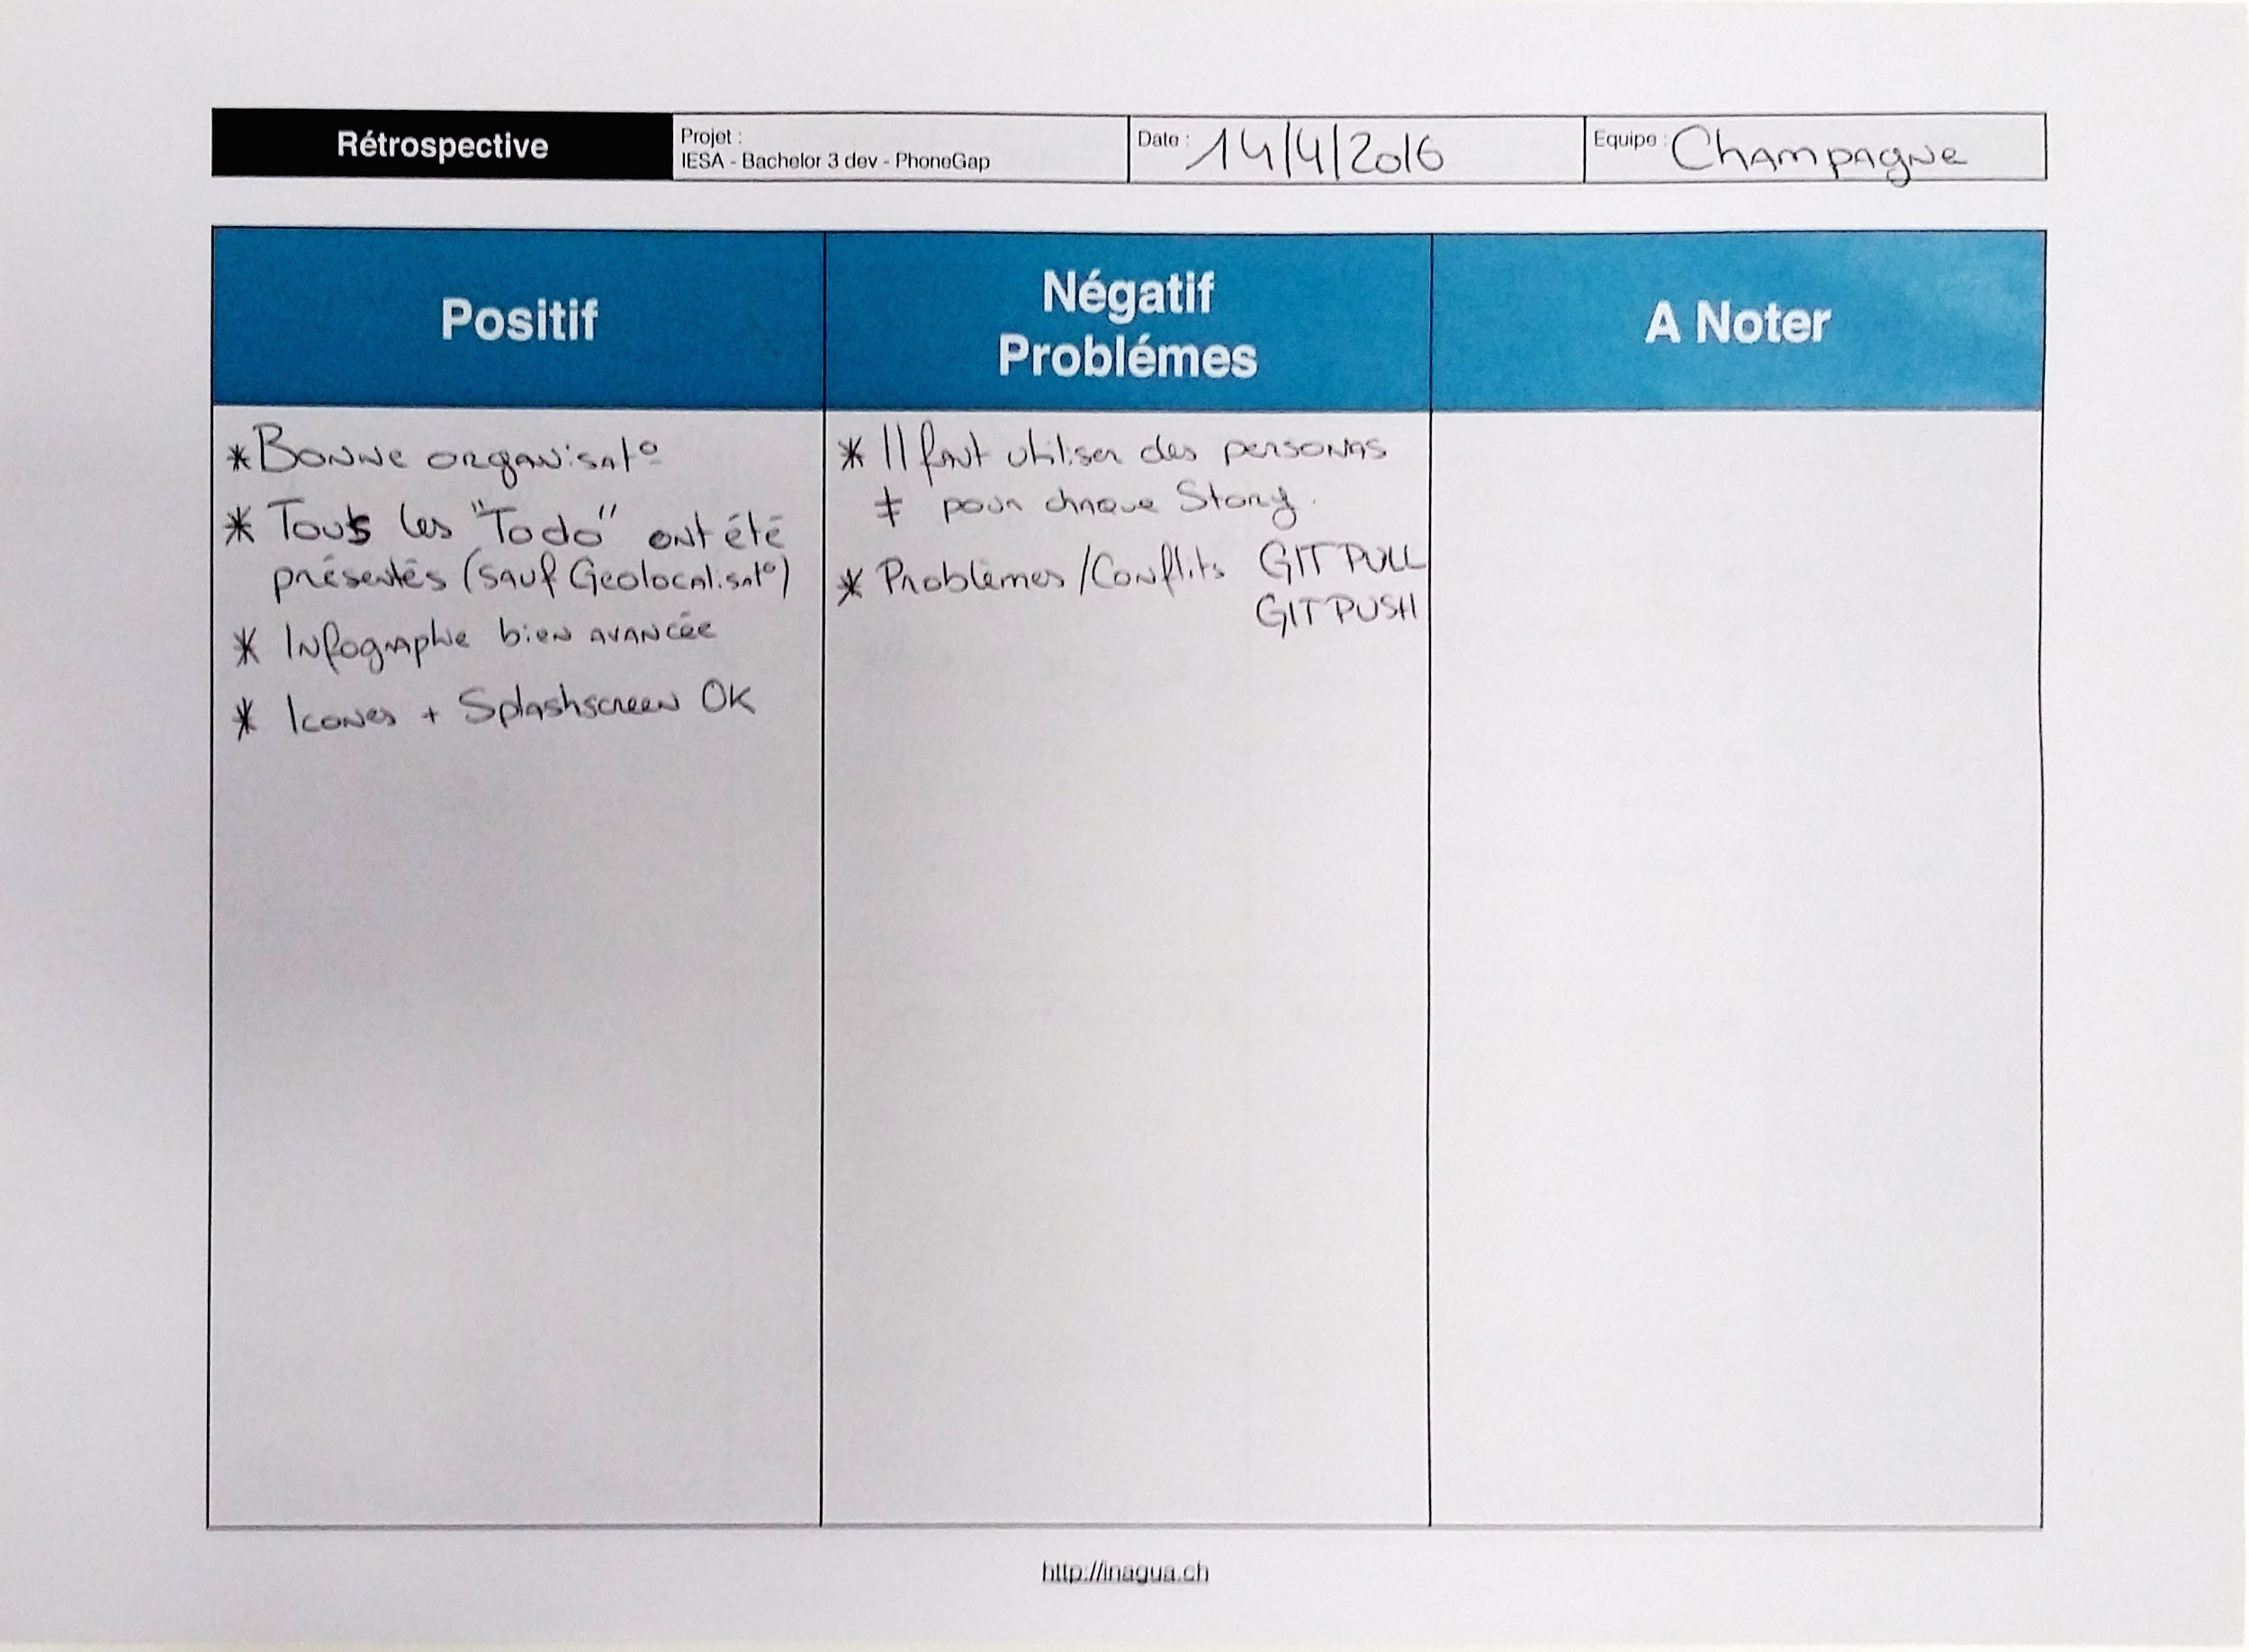 Rétrospective
Projet :
IESA - Bachelor 3 dev - PhoneGap
Date : 14/4/2016
Equipe : Champagne
Positif
Négatif
Problémes
A Noter
* Bonne organisat°
* Touts les "Todo" ont été
présentés (sauf Geolocalisat°)
* Infographie bien avancée
* Icones + Splashscreen OK
* Il faut utiliser des personas
≠ pour chaque Story.
* Problèmes / Conflits GIT PULL
GIT PUSH
http://inagua.ch